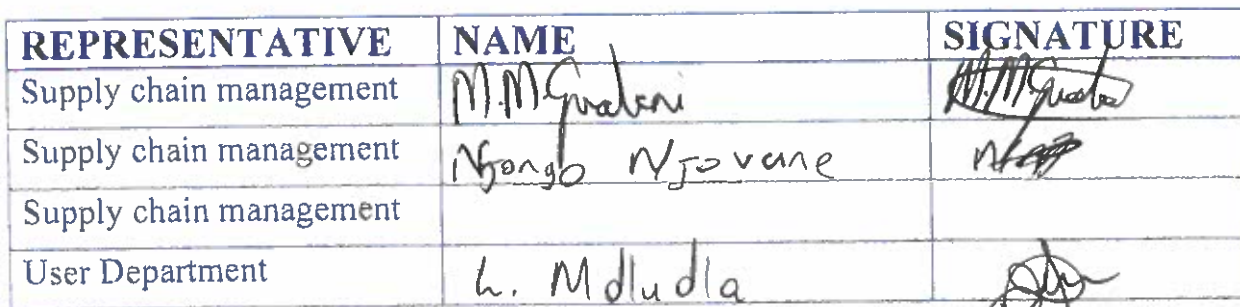 REPRESENTATIVE NAME SIGNATURE
Supply chain management M.M Gwabeni
Supply chain management Njovane
Supply chain management
User Department L. Mdludla